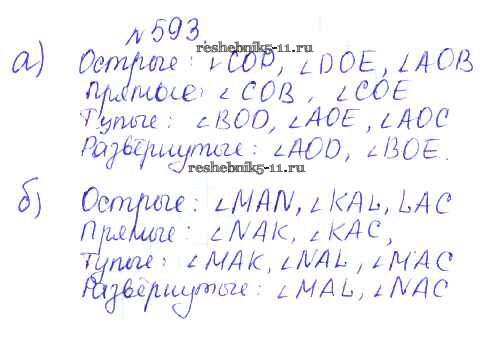 №593.
reshebnik5-11.ru
а) Острые: ∠COD, ∠DOE, ∠AOB
Прямые: ∠COB, ∠COE
Тупые: ∠BOD, ∠AOE, ∠AOC
Развёрнутые: ∠AOD, ∠BOE.
reshebnik5-11.ru
б) Острые: ∠MAN, ∠KAL, LAC
Прямые: ∠NAK, ∠KAC,
Тупые: ∠MAK, ∠NAL, ∠MAC
Развёрнутые: ∠MAL, ∠NAC